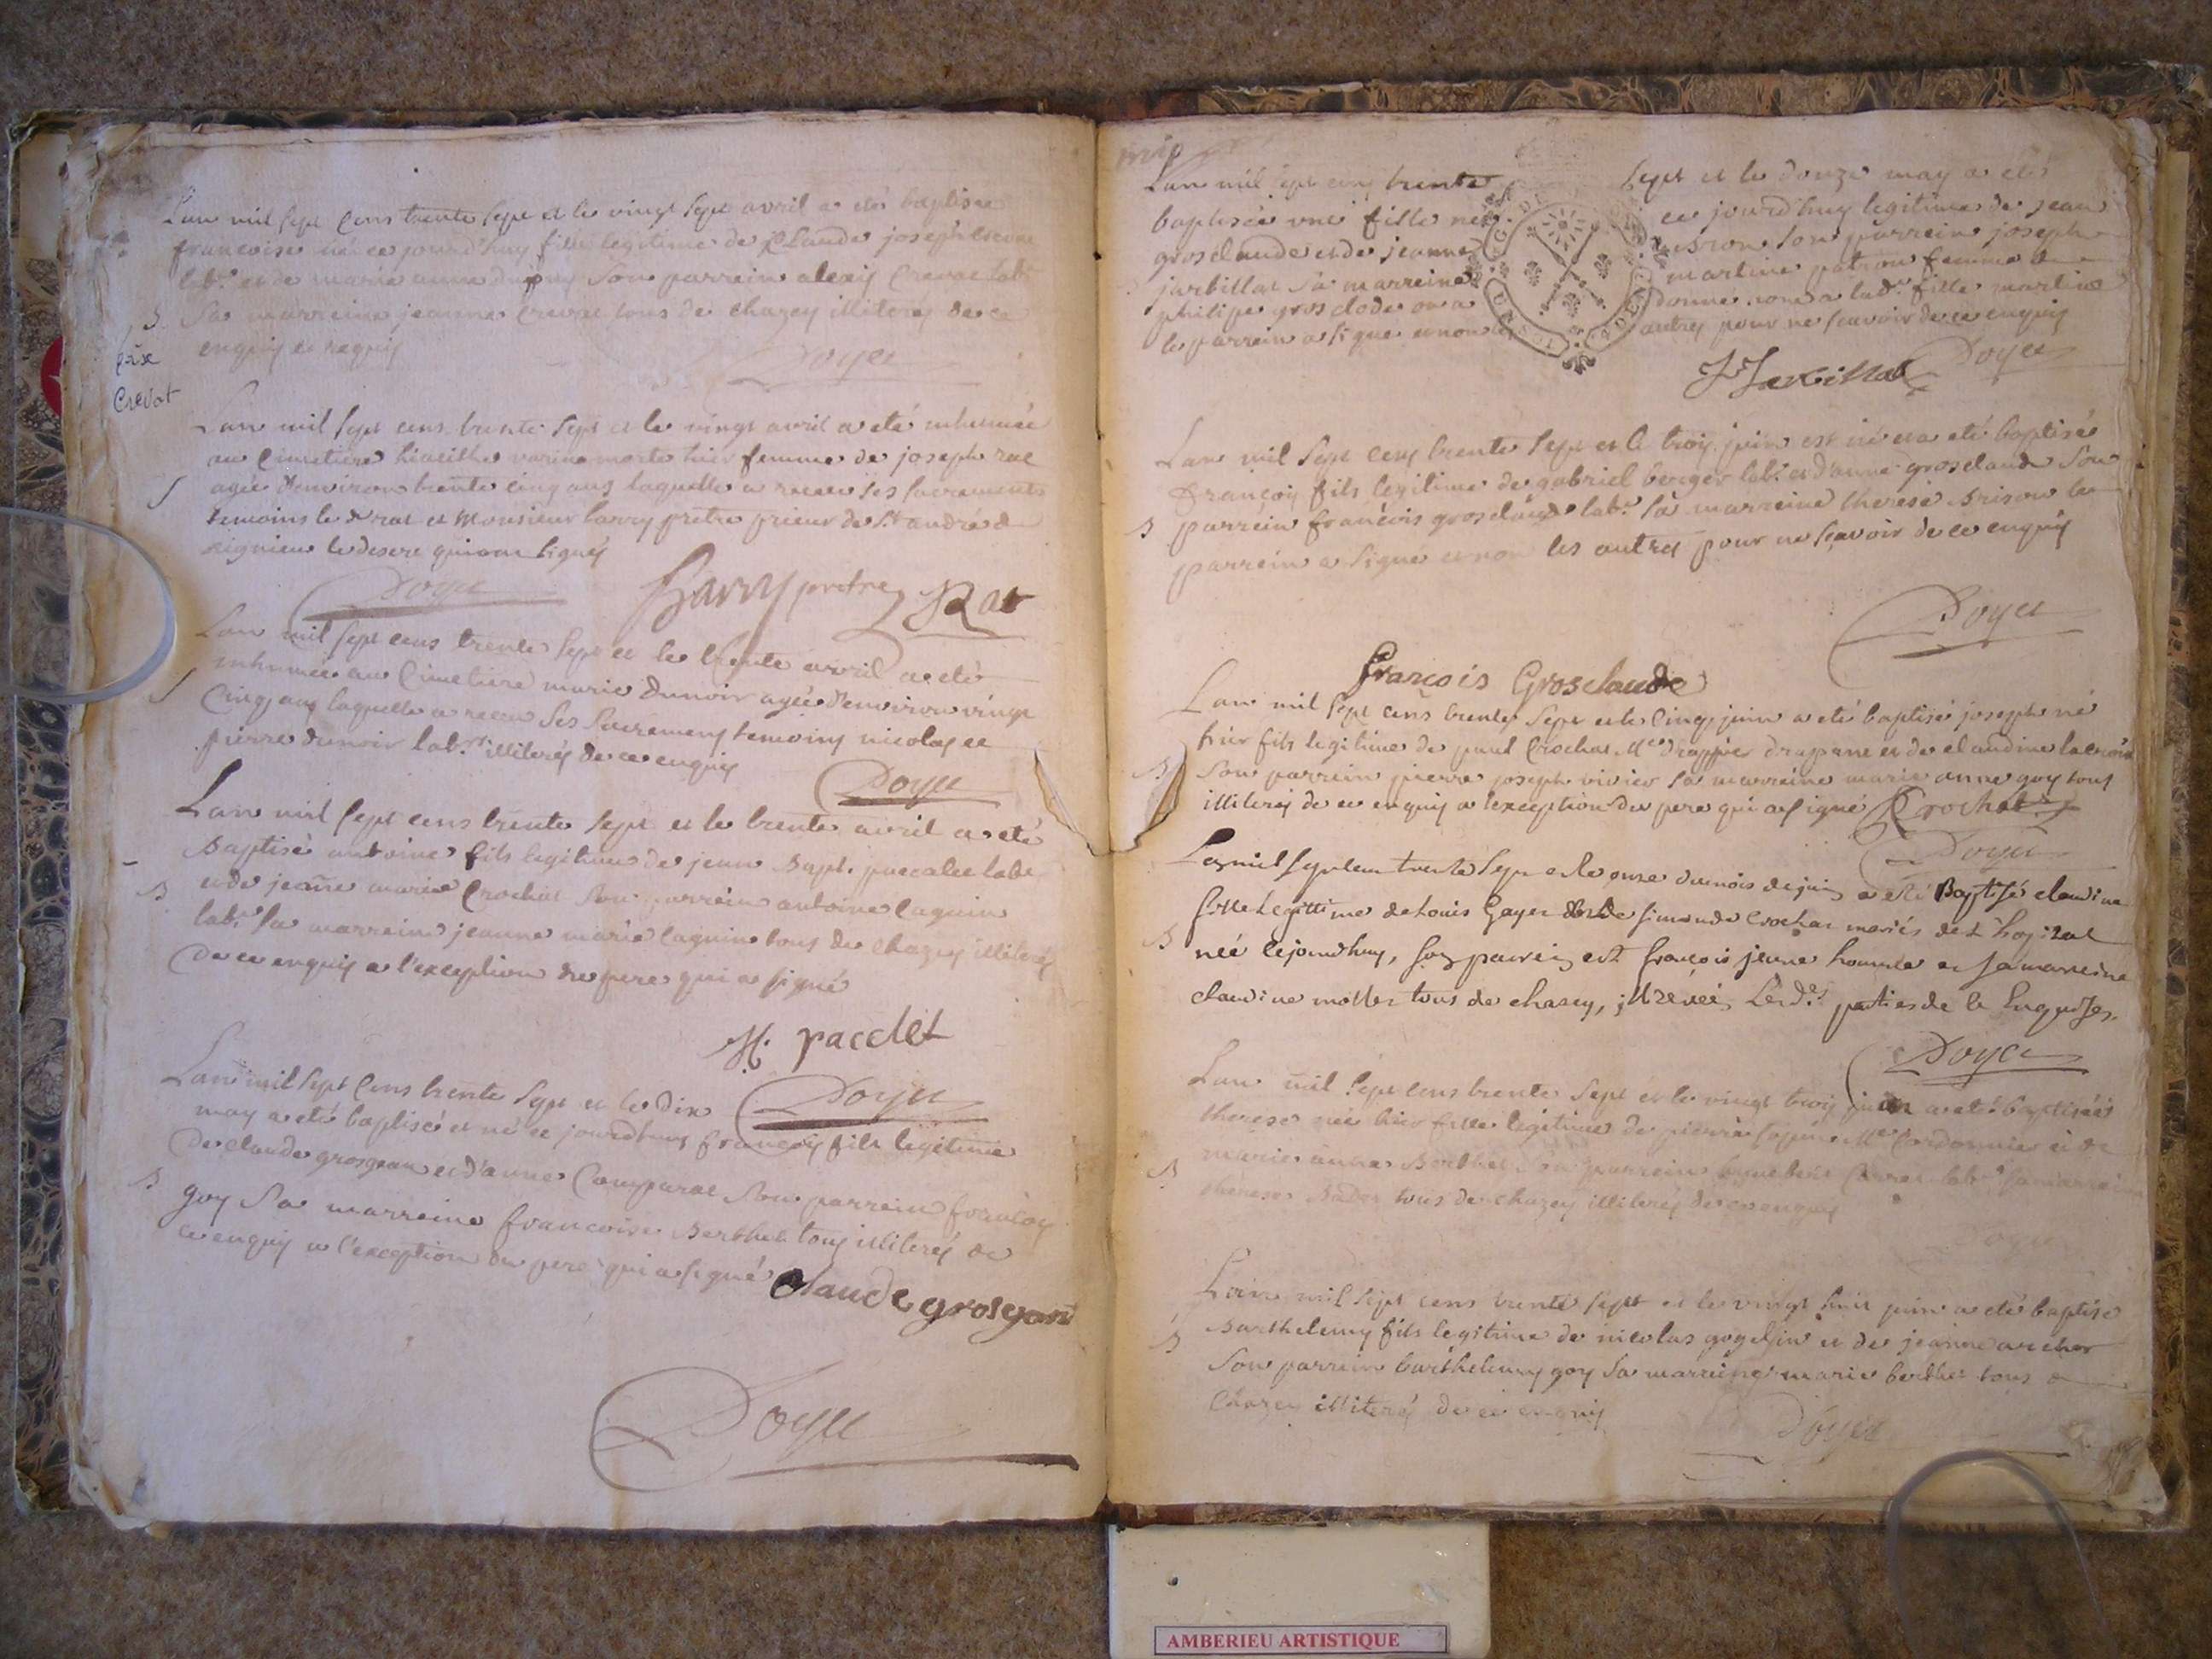 Lan mil sept cens trente sept et le vingt sept avril a etés baptisée
francoise née ce jourd'huy fille legitime de Claude joseph Crevat
labr et de marie anne dupuy son parrein alexis Crevat labr
B. sa marreine jeanne Crevat tous de chazey illiterés de ce
enquis et requis
Doyer
Crevat
Lan mil sept cens trente sept et le vingt avril a eté inhumée
au Cimetiere varin morte hier femme de joseph rat
agée d'environ trente cinq ans laquelle a receu ses sacrements
temoins le dt rat et Monsieur barry prêtre prieur de St andré de
rignieu le desert qui ont signés
Doyer Barry pretre Rat
Lan mil sept cens trente sept et le trente avril a eté
inhumée au Cimetiere marie dunoir agée d'environ vingt
Cinq ans laquelle a receu ses sacremens temoins nicolas et
pierre dunoir labrs illiterés de ce enquis
Doyer
Lan mil sept cens trente sept et le trente avril a eté
Baptisé antoine fils legitime de jean Bapt. paccalet labr
B et de jeanne marie Crochat son parrein antoine Caguin
labr sa marreine jeanne marie Caguin tous de chazey illiterés
de ce enquis a l'exception du pere qui a signé
paccalet
Doyer
Lan mil sept Cens trente sept et le dix
may a eté baptisé et né ce jourdhuy françois fils legitime
de Claude grosgean et d'anne Comparat son parrein françois
B goy sa marreine francoise Berthet tous illiterés de
ce enquis a l'exception du pere qui a signé Claude grosgon
Doyer
Lan mil sept cens trente sept et le douze may a etés
baptisée une fille née ce jourd'huy legitime de jean
grosclaude et de jeanne Brison son parrein joseph
jarbillat sa marreine martine patron femme de
philipe grosclode on a donné nom a lade fille martine
le parrein a signe et non les autres pour ne scavoir de ce enquis
J Jarbillat Doyer
Lan mil sept cens trente sept et le trois juin est né et a eté baptisé
françois fils legitime de gabriel berger labr et d'anne grosclaude son
B parrein françois grosclaude labr sa marreine therese Brison le
parrein a signé et non les autres pour ne sçavoir de ce enquis
Doyer
François Grosclaude
Lan mil sept cens trente sept et le Cinq juin a eté baptisé joseph né
hier fils legitime de paul Crochat Me drappier drapant et de claudine lacroix
B son parrein pierre joseph vivier sa marreine marie anne goy tous
illiterés de ce enquis a l'exception du pere qui a signé Crochat
Doyer
Lan mil sept cens trente sept et le onze du mois de juin a eté Baptisé claudine
fille legittime de Louis Gayet et de simonde Crochat mariés de L'hopital
B née cejourdhuy, son parrein est françois jeune homme et sa marreine
claudine mollet tous de chazey, illiterés Lesdes parties de ce Enquises.
Doyer
Lan mil sept cens trente sept et le vingt trois juin a eté baptisée
therese née hier fille legitime de pierre Me Cordonnier et de
B marie anne Berthet son parrein labr sa marreine
therese Badet tous de chazey illiterés de ce enquis
Doyer
Lan mil sept cens trente sept et le vingt huit juin a eté baptisé
B Barthelemy fils legitime de nicolas et de jeanne archer
son parrein barthelemy goy sa marreine marie berthet tous de
Chazey illiterés de ce enquis
Doyer
AMBERIEU ARTISTIQUE